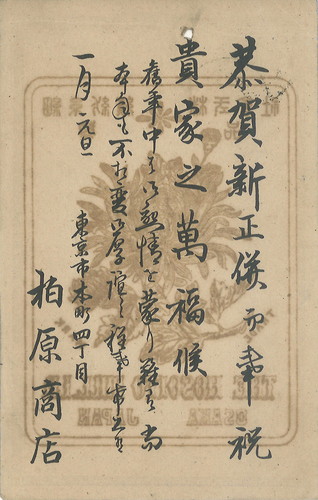 恭賀新正併而奉祝
貴家之萬福候
舊年中ハ御懇情を蒙り難有尚
本年も不相變御厚誼之程奉希上候
一月元旦
東京市本町四丁目
柏原商店
OSAKA
JAPAN
TRADE